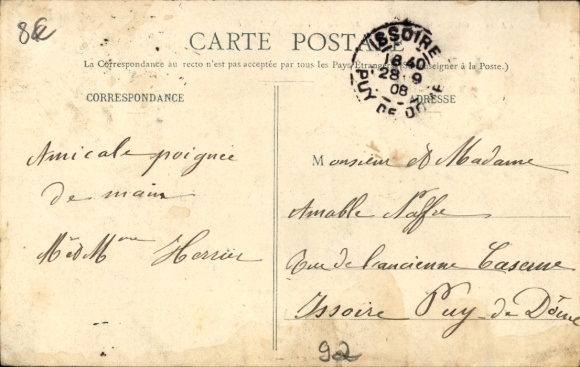 8€
CARTE POSTALE
La Correspondance au recto n'est pas acceptée par tous les Pays Étrangers (Se renseigner à la Poste.)
ISSOIRE
18 40
28 - 9
08
PUY-DE-DOME
CORRESPONDANCE
ADRESSE
Amicale poignée
de main
Mr et Mme Herrier
Monsieur et Madame
Amable Naffre
Rue de l'ancienne Caserne
Issoire Puy-de-Dôme
92